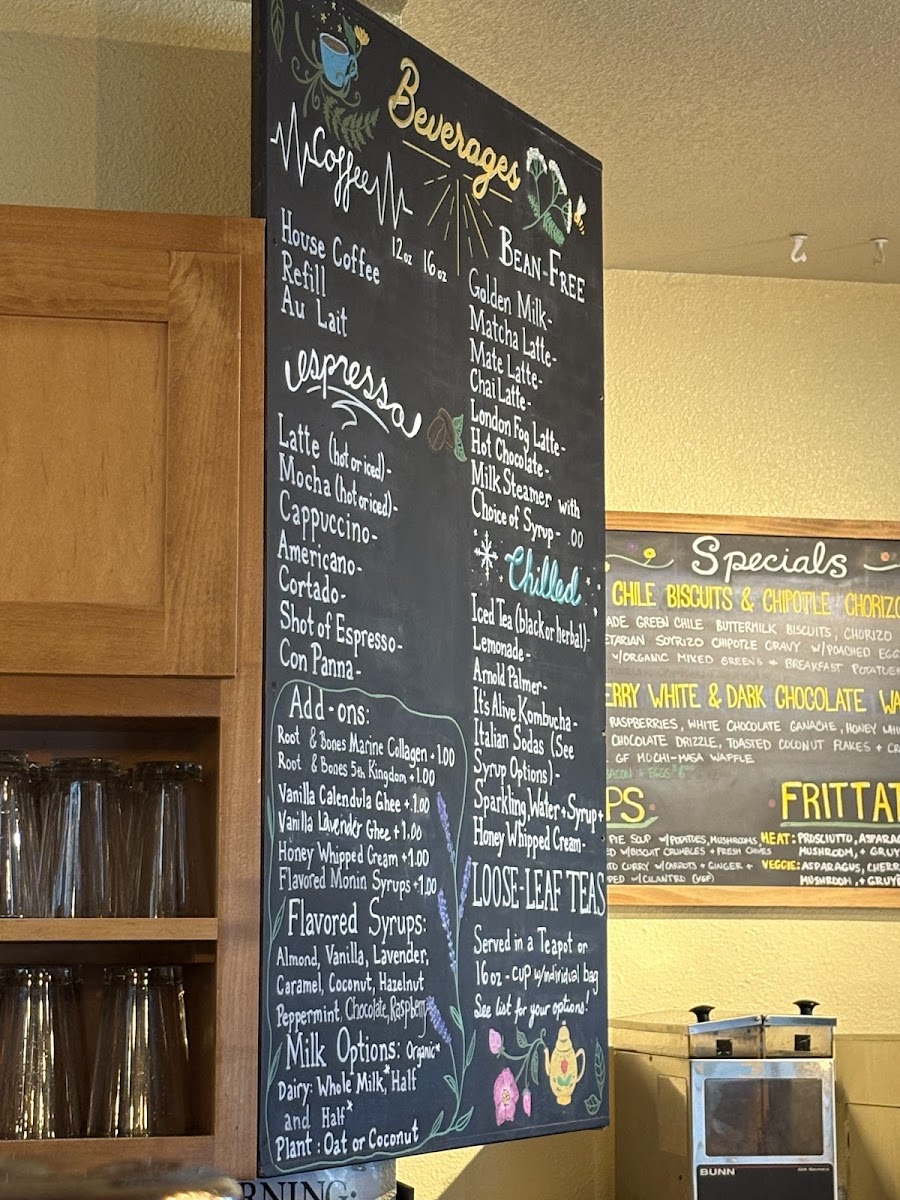 Beverages
Coffee
12oz 16oz
House Coffee
Refill
Au Lait
espresso
Latte (hot or iced)-
Mocha (hot or iced)-
Cappuccino-
Americano-
Cortado-
Shot of Espresso-
Con Panna-
Add-ons:
Root & Bones Marine Collagen +1.00
Root & Bones 5th Kingdom +1.00
Vanilla Calendula Ghee +1.00
Vanilla Lavender Ghee +1.00
Honey Whipped Cream +1.00
Flavored Monin Syrups +1.00
Flavored Syrups:
Almond, Vanilla, Lavender,
Caramel, Coconut, Hazelnut
Peppermint, Chocolate, Raspberry
Milk Options: Organic*
Dairy: Whole Milk,* Half
and Half*
Plant: Oat or Coconut
BEAN-FREE
Golden Milk-
Matcha Latte-
Mate Latte-
Chai Latte-
London Fog Latte-
Hot Chocolate-
Milk Steamer with
Choice of Syrup- .00
Chilled
Iced Tea (black or herbal)-
Lemonade-
Arnold Palmer-
It's Alive Kombucha-
Italian Sodas (See
Syrup Options)-
Sparkling Water + Syrup +
Honey Whipped Cream-
LOOSE-LEAF TEAS
Served in a Teapot or
16oz-cup w/individual bag
See list for your options!
Specials
CHILE BISCUITS & CHIPOTLE CHORIZO
ADE GREEN CHILE BUTTERMILK BISCUITS, CHORIZO
ETARIAN SOYRIZO CHIPOTLE GRAVY W/POACHED EGG
W/ORGANIC MIXED GREENS + BREAKFAST POTATOES
ERRY WHITE & DARK CHOCOLATE WA
RASPBERRIES, WHITE CHOCOLATE GANACHE, HONEY WHI
CHOCOLATE DRIZZLE, TOASTED COCONUT FLAKES + CR
GF MOCHI-MASA WAFFLE
BACON + EGGS
PS
PIE SOUP W/POTATOES, MUSHROOMS,
D W/BISCUIT CRUMBLES + FRESH CHIVES
CURRY W/CARROTS + GINGER +
PED W/CILANTRO (V&GF)
FRITTAT
MEAT: PROSCIUTTO, ASPARAG
MUSHROOM, + GRUY
VEGGIE: ASPARAGUS, CHERR
MUSHROOM, + GRUYE
BUNN
RNING: